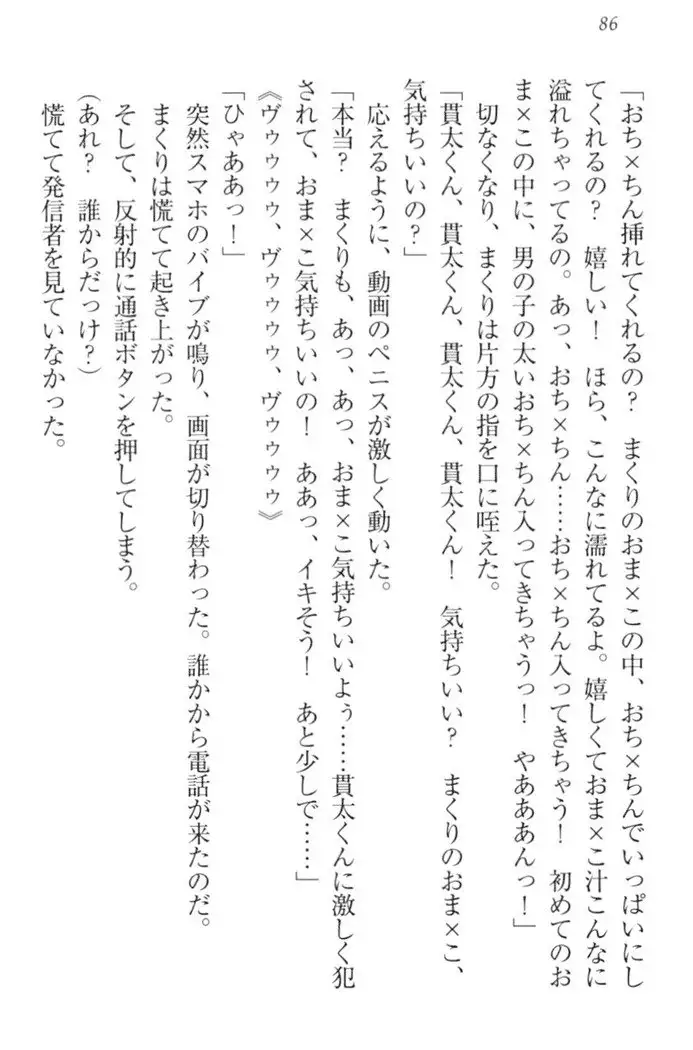 86
「おち×ちん挿れてくれるの？　まくりのおま×この中、おち×ちんでいっぱいにし
てくれるの？　嬉しい！　ほら、こんなに濡れてるよ。嬉しくておま×こ汁こんなに
溢れちゃってるの。あっ、おち×ちん……おち×ちん入ってきちゃう！　初めてのお
ま×この中に、男の子の太いおち×ちん入ってきちゃうっ！　やあああんっ！」
切なくなり、まくりは片方の指を口に咥えた。
「貫太くん、貫太くん、貫太くん！　気持ちいい？　まくりのおま×こ、
気持ちいいの？」
応えるように、動画のペニスが激しく動いた。
「本当？　まくりも、あっ、あっ、おま×こ気持ちいいよぅ……貫太くんに激しく犯
されて、おま×こ気持ちいいの！　ああっ、イキそう！　あと少しで……」
《ヴゥゥゥゥ、ヴゥゥゥゥ、ヴゥゥゥゥ》
「ひゃああっ！」
突然スマホのバイブが鳴り、画面が切り替わった。誰かから電話が来たのだ。
まくりは慌てて起き上がった。
そして、反射的に通話ボタンを押してしまう。
（あれ？　誰からだっけ？）
慌てて発信者を見ていなかった。